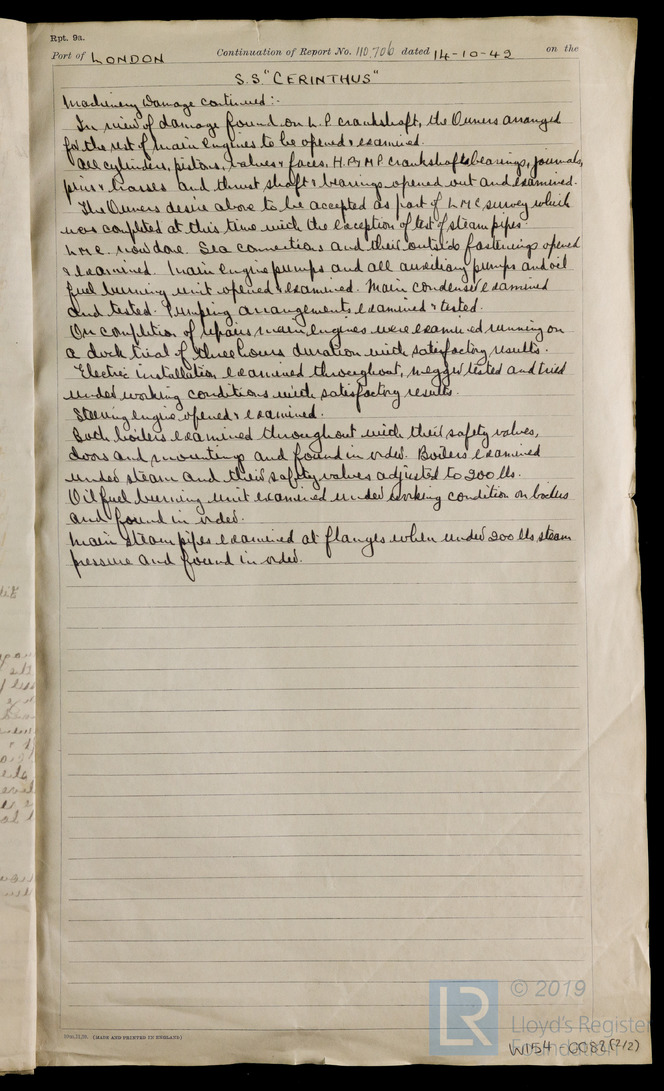 Rpt. 9a.
Port of LONDON Continuation of Report No. 110,706 dated 14-10-42 on the
S.S. "CERINTHUS"
Machinery Damage continued:-
In view of damage found on L.P. crankshaft, the Owners arranged
for the rest of main engines to be opened & examined.
All cylinders, pistons, valves & faces, H.P. & M.P. crankshafts bearings, journals,
pins & brasses and thrust shaft & bearings opened out and examined.
The Owners desire above to be accepted as part of LMC survey which
was completed at this time with the exception of test of steam pipes.
LMC. now done. Sea connections and their outside fastenings opened
& examined. Main engine pumps and all auxiliary pumps and oil
fuel burning unit opened & examined. Main condenser examined
and tested. Pumping arrangements examined & tested.
On completion of repairs main engines were examined running on
a dock trial of three hours duration with satisfactory results.
Electric installation examined throughout, megger tested and tried
under working conditions with satisfactory results.
Steering engine opened & examined.
Both boilers examined throughout with their safety valves,
doors and mountings and found in order. Boilers examined
under steam and their safety valves adjusted to 200 lbs.
Oil fuel burning unit examined under working condition on boilers
and found in order.
Main steam pipes examined at flanges when under 200 lbs steam
pressure and found in order.
(MADE AND PRINTED IN ENGLAND)
© 2019
LR
Lloyd's Register
Foundation
W154-0082 (2/2)